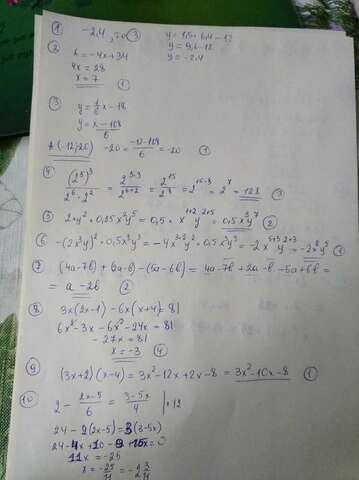 ① -2,4
③ y = 1,5 · 6,4 - 12
y = 9,6 - 12
y = -2.4
②
6 = -4x + 34
4x = 28
x = 7 ①
③ y = 1/6 x - 18
y = x - 108 / 6
A (-12; 20) -20 = -12 - 108 / 6 = -20 ①
④ (2⁵)³ / 2⁶ · 2² = 2^5·3 / 2^6+2 = 2¹⁵ / 2⁸ = 2^15-8 = 2⁷ = 128 ③
⑤ 2xy² · 0,25x²y⁵ = 0,5 · x^1+2 y^2+5 = 0,5x³y⁷ ②
⑥ -(2x³y)² · 0,5x²y³ = -4x^3·2 y² · 0,5x²y³ = -2x y^2+3 = -2x⁸y⁵ ①
⑦ (4a - 7b) + (2a - b) - (5a - 6b) = 4a - 7b + 2a - b - 5a + 6b =
= a - 2b ②
⑧ 3x(2x - 1) - 6x(x + 4) = 81
6x² - 3x - 6x² - 24x = 81
- 27x = 81
x = -3 ④
⑨ (3x + 2)(x - 4) = 3x² - 12x + 2x - 8 = 3x² - 10x - 8 ①
⑩
2 - 2x-5 / 6 = 3-5x / 4 | · 12
24 - 2(2x - 5) = 3(3 - 5x)
24 - 4x + 10 - 9 + 15x = 0
11x = -25
x = -25/11 = -2 3/11